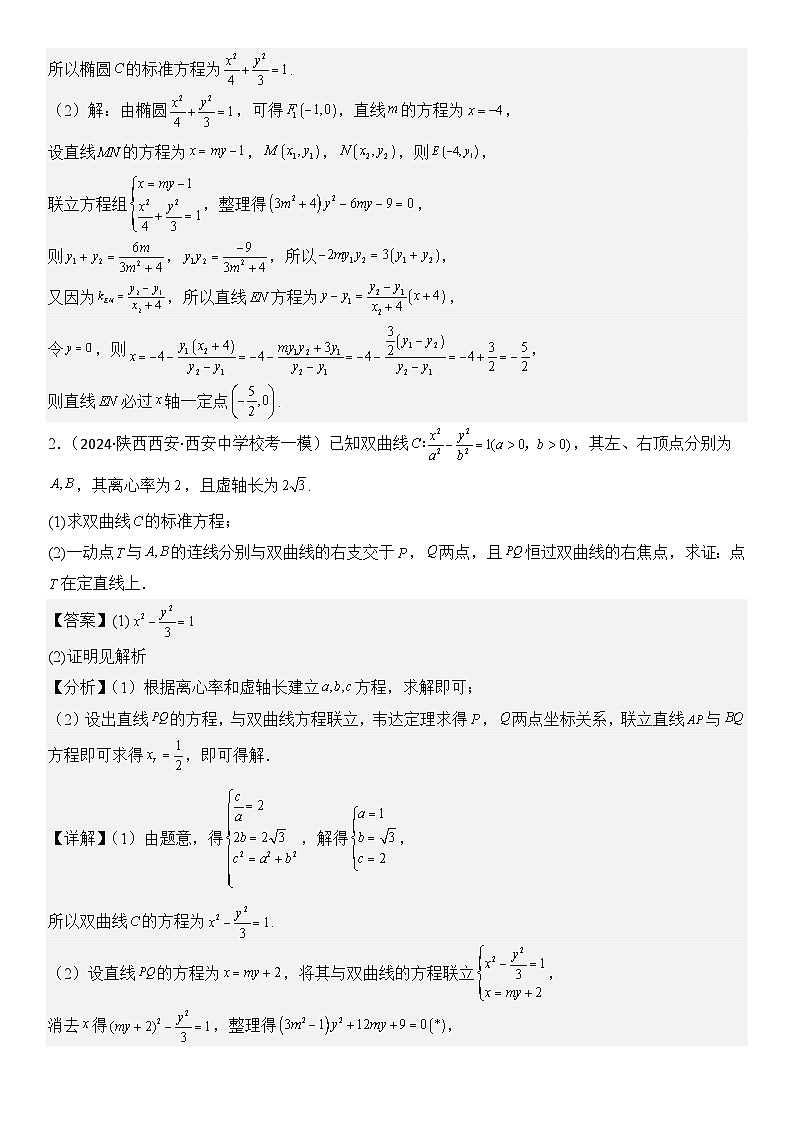 所以椭圆C的标准方程为x²/4+y²/3=1.
(2)解：由椭圆x²/4+y²/3=1，可得F₁(−1,0)，直线m的方程为x=−4，
设直线MN的方程为x=my−1，M(x₁,y₁)，N(x₂,y₂)，则E(−4,y₁)，
联立方程组{x=my−1, x²/4+y²/3=1，整理得(3m²+4)y²−6my−9=0，
则y₁+y₂=6m/(3m²+4)，y₁y₂=−9/(3m²+4)，所以−2my₁y₂=3(y₁+y₂)，
又因为k_EN=(y₂−y₁)/(x₂+4)，所以直线EN方程为y−y₁=(y₂−y₁)/(x₂+4)(x+4)，
令y=0，则x=−4−y₁(x₂+4)/(y₂−y₁)=−4−(my₁y₂+3y₁)/(y₂−y₁)=−4−(3/2)(y₁−y₂)/(y₂−y₁)=−4+3/2=−5/2，
则直线EN必过x轴一定点(−5/2,0).
2.（2024·陕西西安·西安中学校考一模）已知双曲线C:x²/a²−y²/b²=1(a>0，b>0)，其左、右顶点分别为
A,B，其离心率为2，且虚轴长为2√3.
(1)求双曲线C的标准方程；
(2)一动点T与A,B的连线分别与双曲线的右支交于P，Q两点，且PQ恒过双曲线的右焦点，求证：点
T在定直线上.
【答案】(1)x²−y²/3=1
(2)证明见解析
【分析】（1）根据离心率和虚轴长建立a,b,c方程，求解即可；
（2）设出直线PQ的方程，与双曲线方程联立，韦达定理求得P，Q两点坐标关系，联立直线AP与BQ
方程即可求得x_T=1/2，即可得解.
【详解】（1）由题意，得{c/a=2, 2b=2√3, c²=a²+b²，解得{a=1, b=√3, c=2，
所以双曲线C的方程为x²−y²/3=1.
（2）设直线PQ的方程为x=my+2，将其与双曲线的方程联立{x²−y²/3=1, x=my+2，
消去x得(my+2)²−y²/3=1，整理得(3m²−1)y²+12my+9=0(*)，